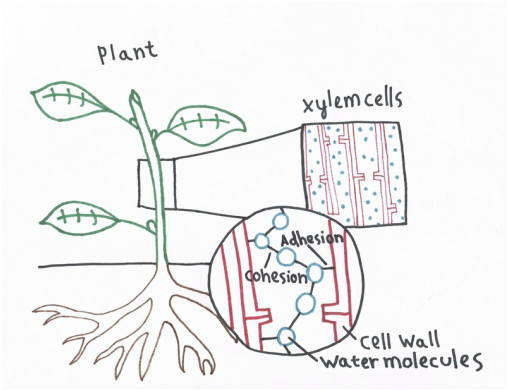 Plant
xylem cells
Adhesion
Cohesion
Cell Wall
Water molecules